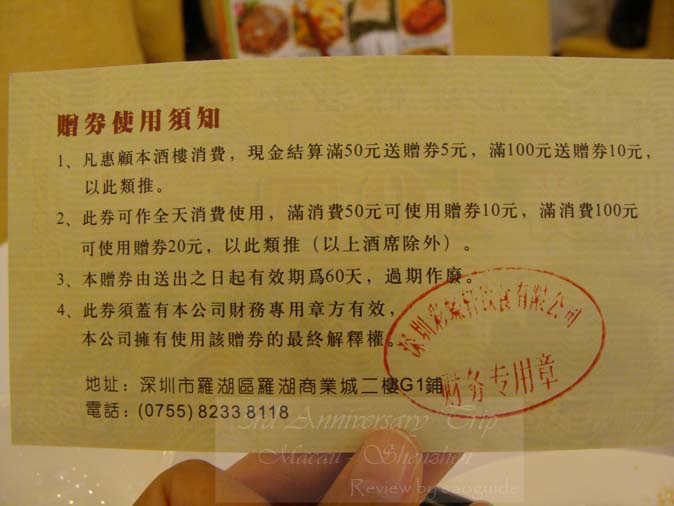 贈券使用須知
1、凡惠顧本酒樓消費，現金結算滿50元送贈券5元，滿100元送贈券10元，
以此類推。
2、此券可作全天消費使用，滿消費50元可使用贈券10元，滿消費100元
可使用贈券20元，以此類推（以上酒席除外）。
3、本贈券由送出之日起有效期爲60天，過期作廢。
4、此券須蓋有本公司財務專用章方有效，
本公司擁有使用該贈券的最終解釋權。
深圳彩 軒飲食有限公司
财务专用章
地址：深圳市羅湖區羅湖商業城二樓G1鋪
電話：(0755) 8233 8118
3rd Anniversary Trip
Macau / Shenzhen
Review by